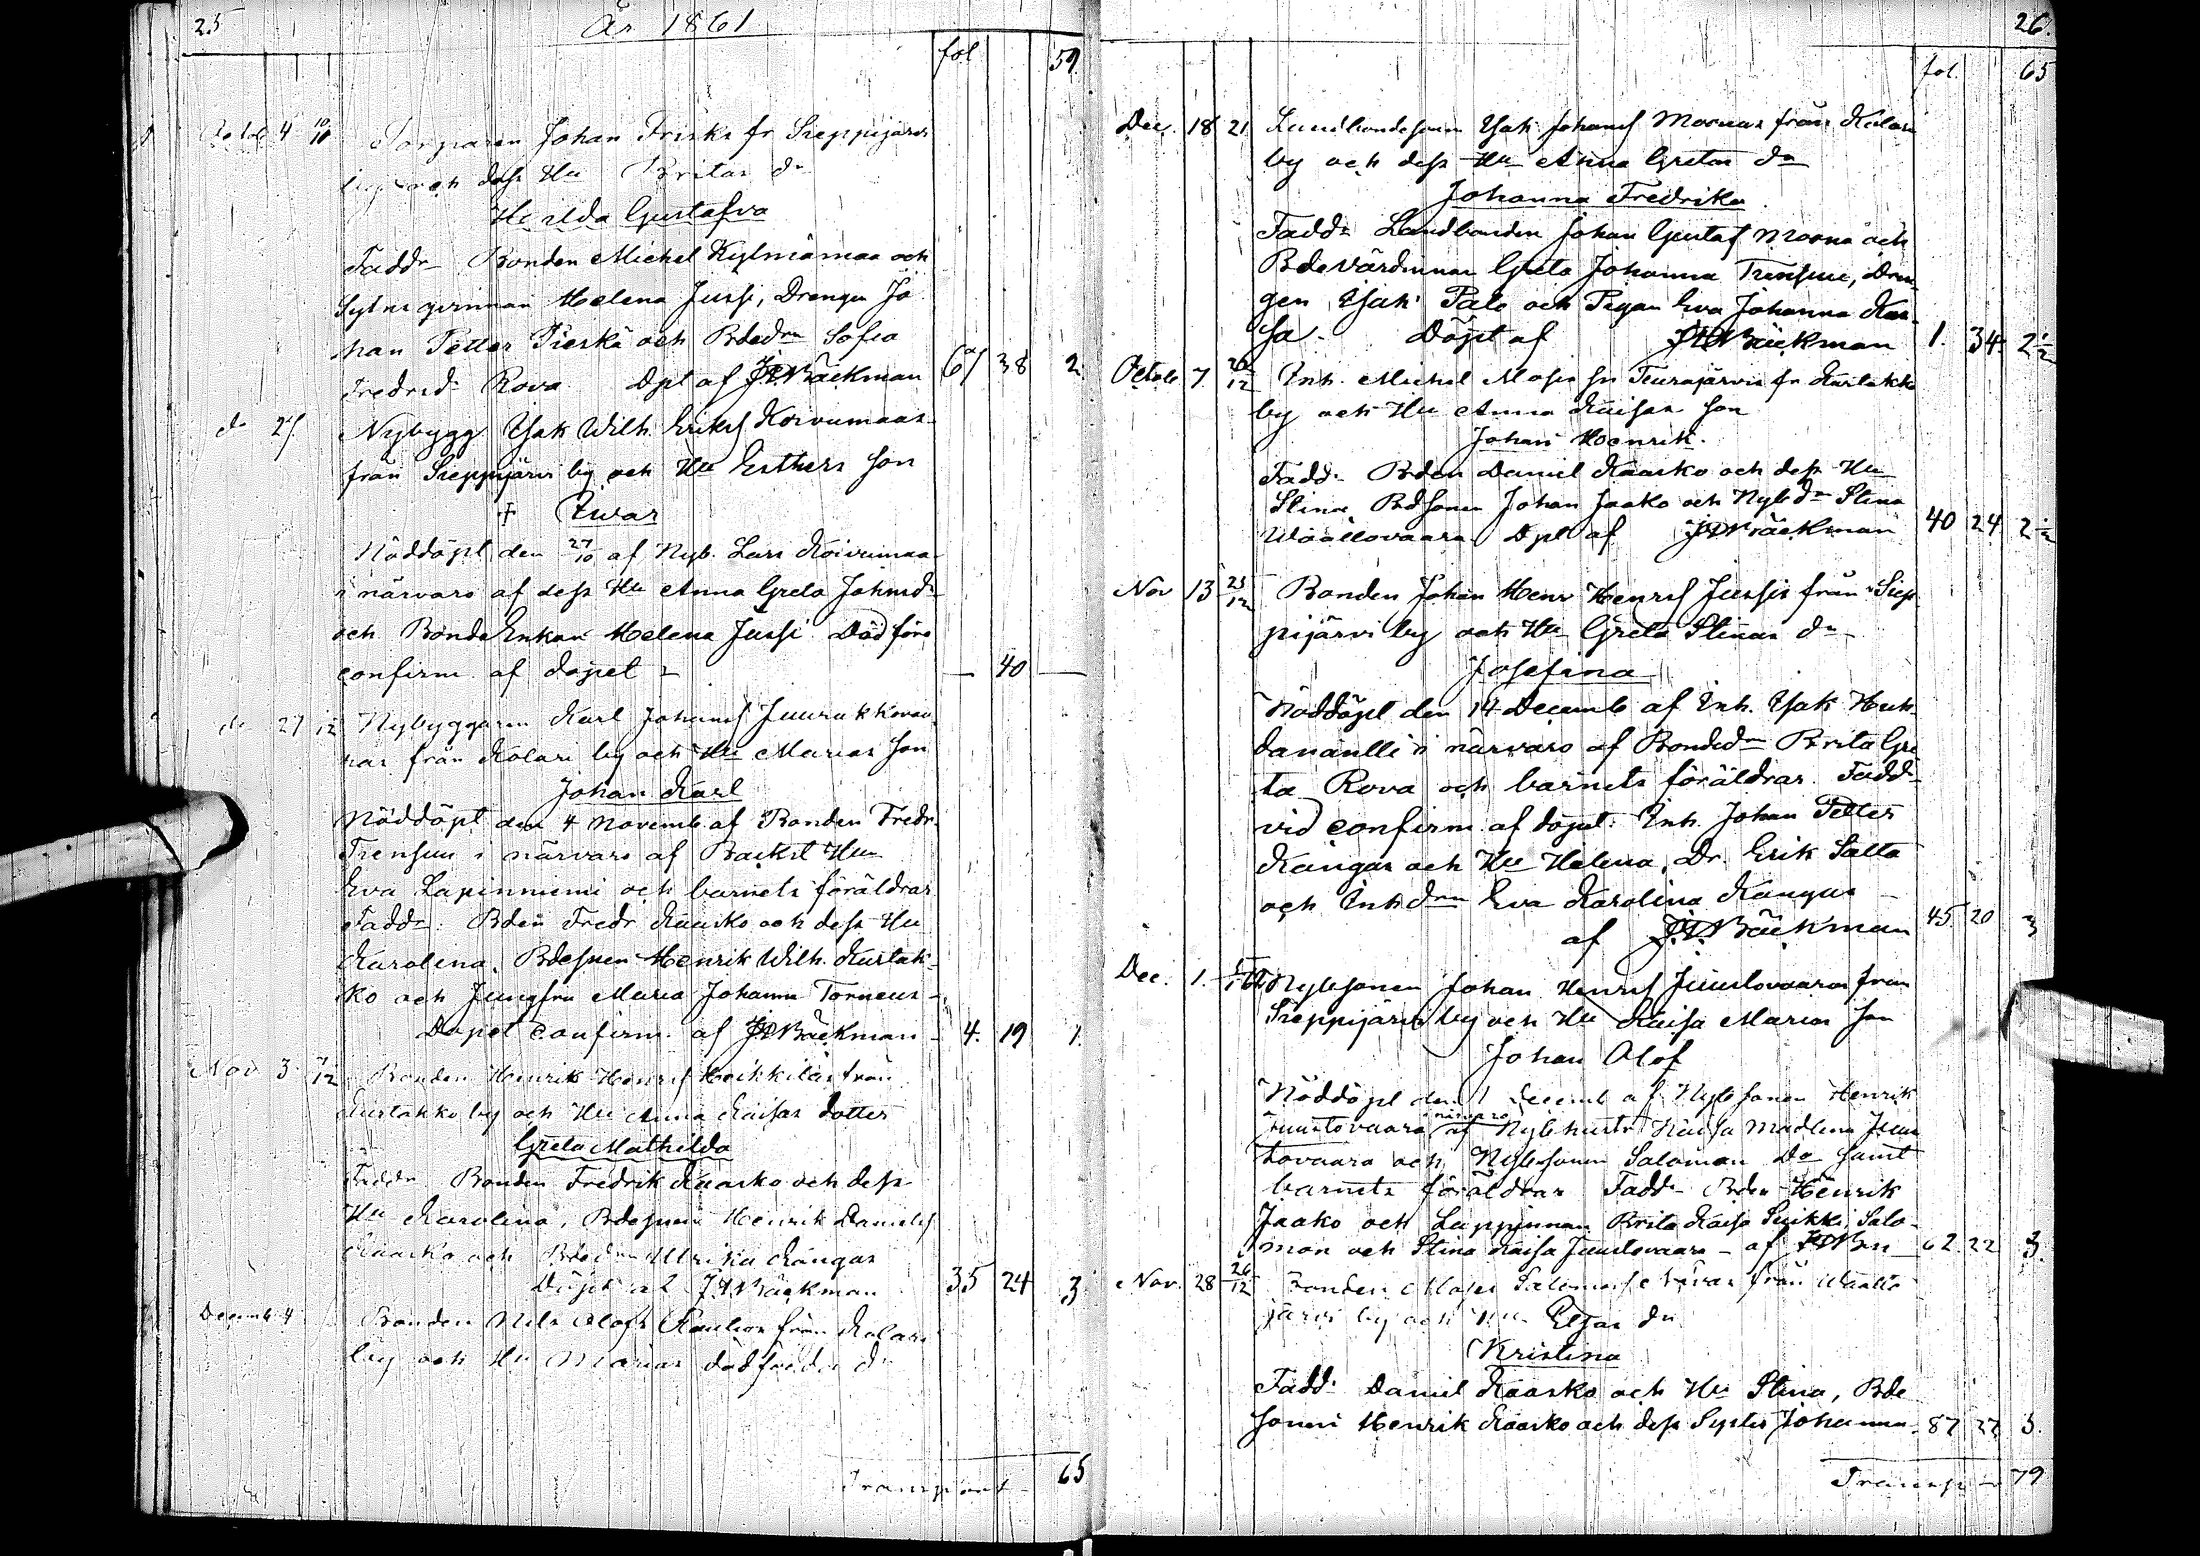 25
År 1861
fol 59
Octob 4 10/10 Torparen Johan Frisks fr Sieppijärvi
by och dess Hu Britas dr
Hilda Gustafva
Faddr Bonden Michel Kylmämaa och
Helena Jussi, Drengen Jo
han Petter Pieskä och Bdedrn Sofia
Fredrd Rova Dpt af JWBäckman 67 38 2
do 27 Nybygg Isak Wilh. Eriks Koivumaas
från Sieppijärvi by och Hu Esthers son
+ Ivar
Nöddöpt den 27/10 af Nyb. Lars Koivumaa
i närvaro af dess Hu Anna Greta Johnsdr
och BondeEnkan Helena Jussi Död före
confirm af dopet – — 40 —
do 27 Nybyggaren Karl Johans Juurakko
nas från Kolari by och Hu Marias son
Johan Karl
Nöddöpt den 4 Novemb. af Bonden Fredr.
Trensuu i närvaro af Backst Hun
Eva Lapinniemi och barnets föräldrar
Faddr: Bden Fredr Kaarko och dess Hu
Karolina, Bdesonen Henrik Wilh. Kurtak-
ko och Jungfru Maria Johanna Torneus –
Dopet confirm. af JWBäckman 4. 19 1.
Nov 3 7/12 Bonden Henrik Henrs Heikkiläs från
Kurtakko by och Hu Anna Kaisas dotter
Greta Mathilda
Faddr. Bonden Fredrik Kaarko och dess
Hu Karolina, Bdesonen Henrik Daniels
Kaarko och Bdedrn Ulrika Kangas
Döpt af JWBäckman 35 24 3
Decemb 4 Bonden Nils Olofs Raution från Kolari
by och Hu Marias dödfödde dr
Transport 65
26.
fol. 65
Dec. 18 21 Landbondesonen Isak Johans Moonas från Kolari
by och dess Hu Anna Gretas dr
Johanna Fredrika
Faddr Landbonden Johan Gustaf Moona och
Bdevärdinnan Greta Johanna Trensuu, Dren-
gen Isak Palo och Pigan Eva Johanna Kar-
sa. Döpt af JWBäckman 1. 34 2½
Octob 7 26/12 Inh. Michel Mosis sn Teurajärvis fr Kurtakko
by och Hu Anna Kaisas son
Johan Henrik.
Fadd. Bden Daniel Kaarko och dess Hu
Stina Bdsonen Johan Jaako och Nybdr Stina
Dpt af JWBäckman 40 24 2½
Nov 13 23/12 Bonden Johan Henr Henrs Jussis från Siep
pijärvi by och Hu Greta Stinas dr
Josefina
Nöddöpt den 14 Decemb af Inh. Isak Huh
i närvaro af Bondedr Brita Gre
ta Rova och barnets föräldrar. Faddr
vid confirm. af dopet: Inh. Johan Petter
Kangas och Hu Helena, Dr. Erik Salla
och Inhdrn Eva Karolina Kangas –
af JWBäckman 45 20 3
Dec. 1. Nybsonen Johan Henrs Juustovaaras från
Sieppijärvi by och Hu Kaisa Marias son
Johan Olof
Nöddöpt den 1 Decemb af Nybsonen Henrik
Juustovaara närvaro af Nybhustr Kaisa Madlena Juus
tovaara och Nybsonen Salomon Do samt
barnets föräldrar Faddr Bden Henrik
Jaako och Lappinnan Brita Kaisa Suikki, Salo-
mon och Stina Kaisa Juustovaara – af JWBn 62 22 3.
Nov. 28 26/12 Bonden Moses Salomons från
järvi by och Hu Elsas dr
Kristina
Fadd. Daniel Kaarko och Hu Stina, Bde
sonen Henrik Kaarko och dess Syster Johanna. 87 27 3.
Transp – 79